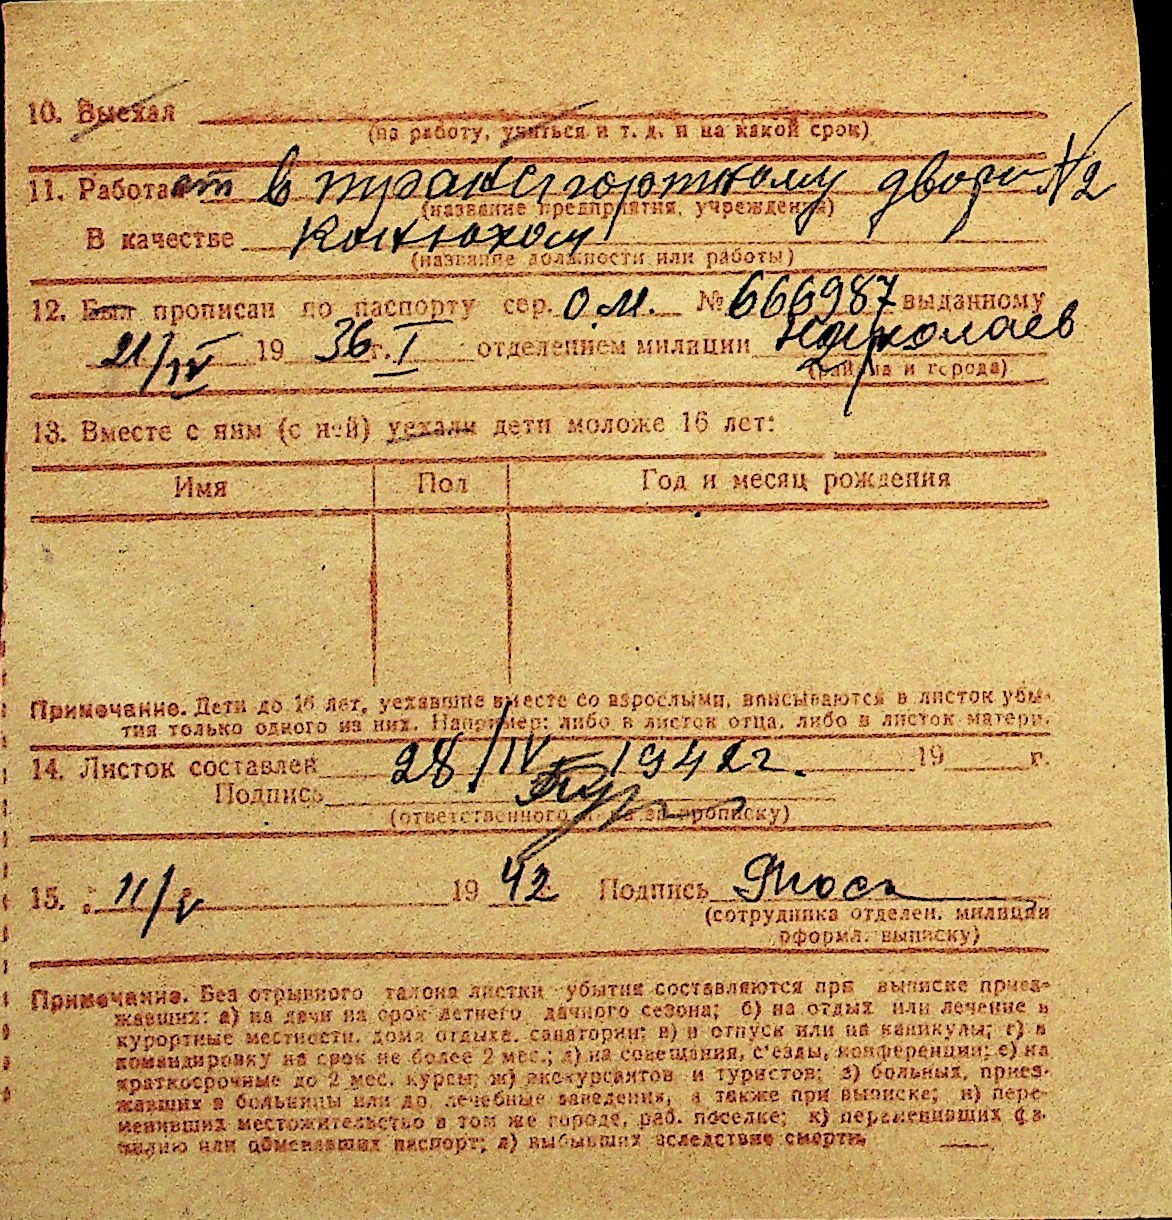 10. Выехал
(на работу, учиться и т. д. и на какой срок)
11. Работает в транспортному дворе № 2
(название предприятия, учреждения)
В качестве Конюхом
(название должности или работы)
12. Был прописан по паспорту сер. О.М. № 666987 выданному
21/IV 1936 г. I отделением милиции Николаев
(района и города)
13. Вместе с ним (с ней) уехали дети моложе 16 лет:
Имя Пол Год и месяц рождения
Примечание. Дети до 16 лет, уехавшие вместе со взрослыми, вписываются в листок убы-
тия только одного из них. Например: либо в листок отца, либо в листок матери.
14. Листок составлен 28/IV 1942 г. 19 г.
Подпись
(ответственного за прописку)
15. 11/V 1942 Подпись
(сотрудника отделен. милиции
оформл. выписку)
Примечание. Без отрывного талона листки убытия составляются при выписке приез-
жавших: а) на дачи на срок летнего дачного сезона; б) на отдых или лечение в
курортные местности, дома отдыха, санатории; в) в отпуск или на каникулы; г) в
командировку на срок не более 2 мес.; д) на совещания, с'езды, конференции; е) на
краткосрочные до 2 мес. курсы; ж) экскурсантов и туристов; з) больных, приез-
жавших в больницы или др. лечебные заведения, а также при выписке; и) пере-
менивших местожительство в том же городе, раб. поселке; к) переменивших фа-
милию или обменявших паспорт; л) выбывших вследствие смерти.